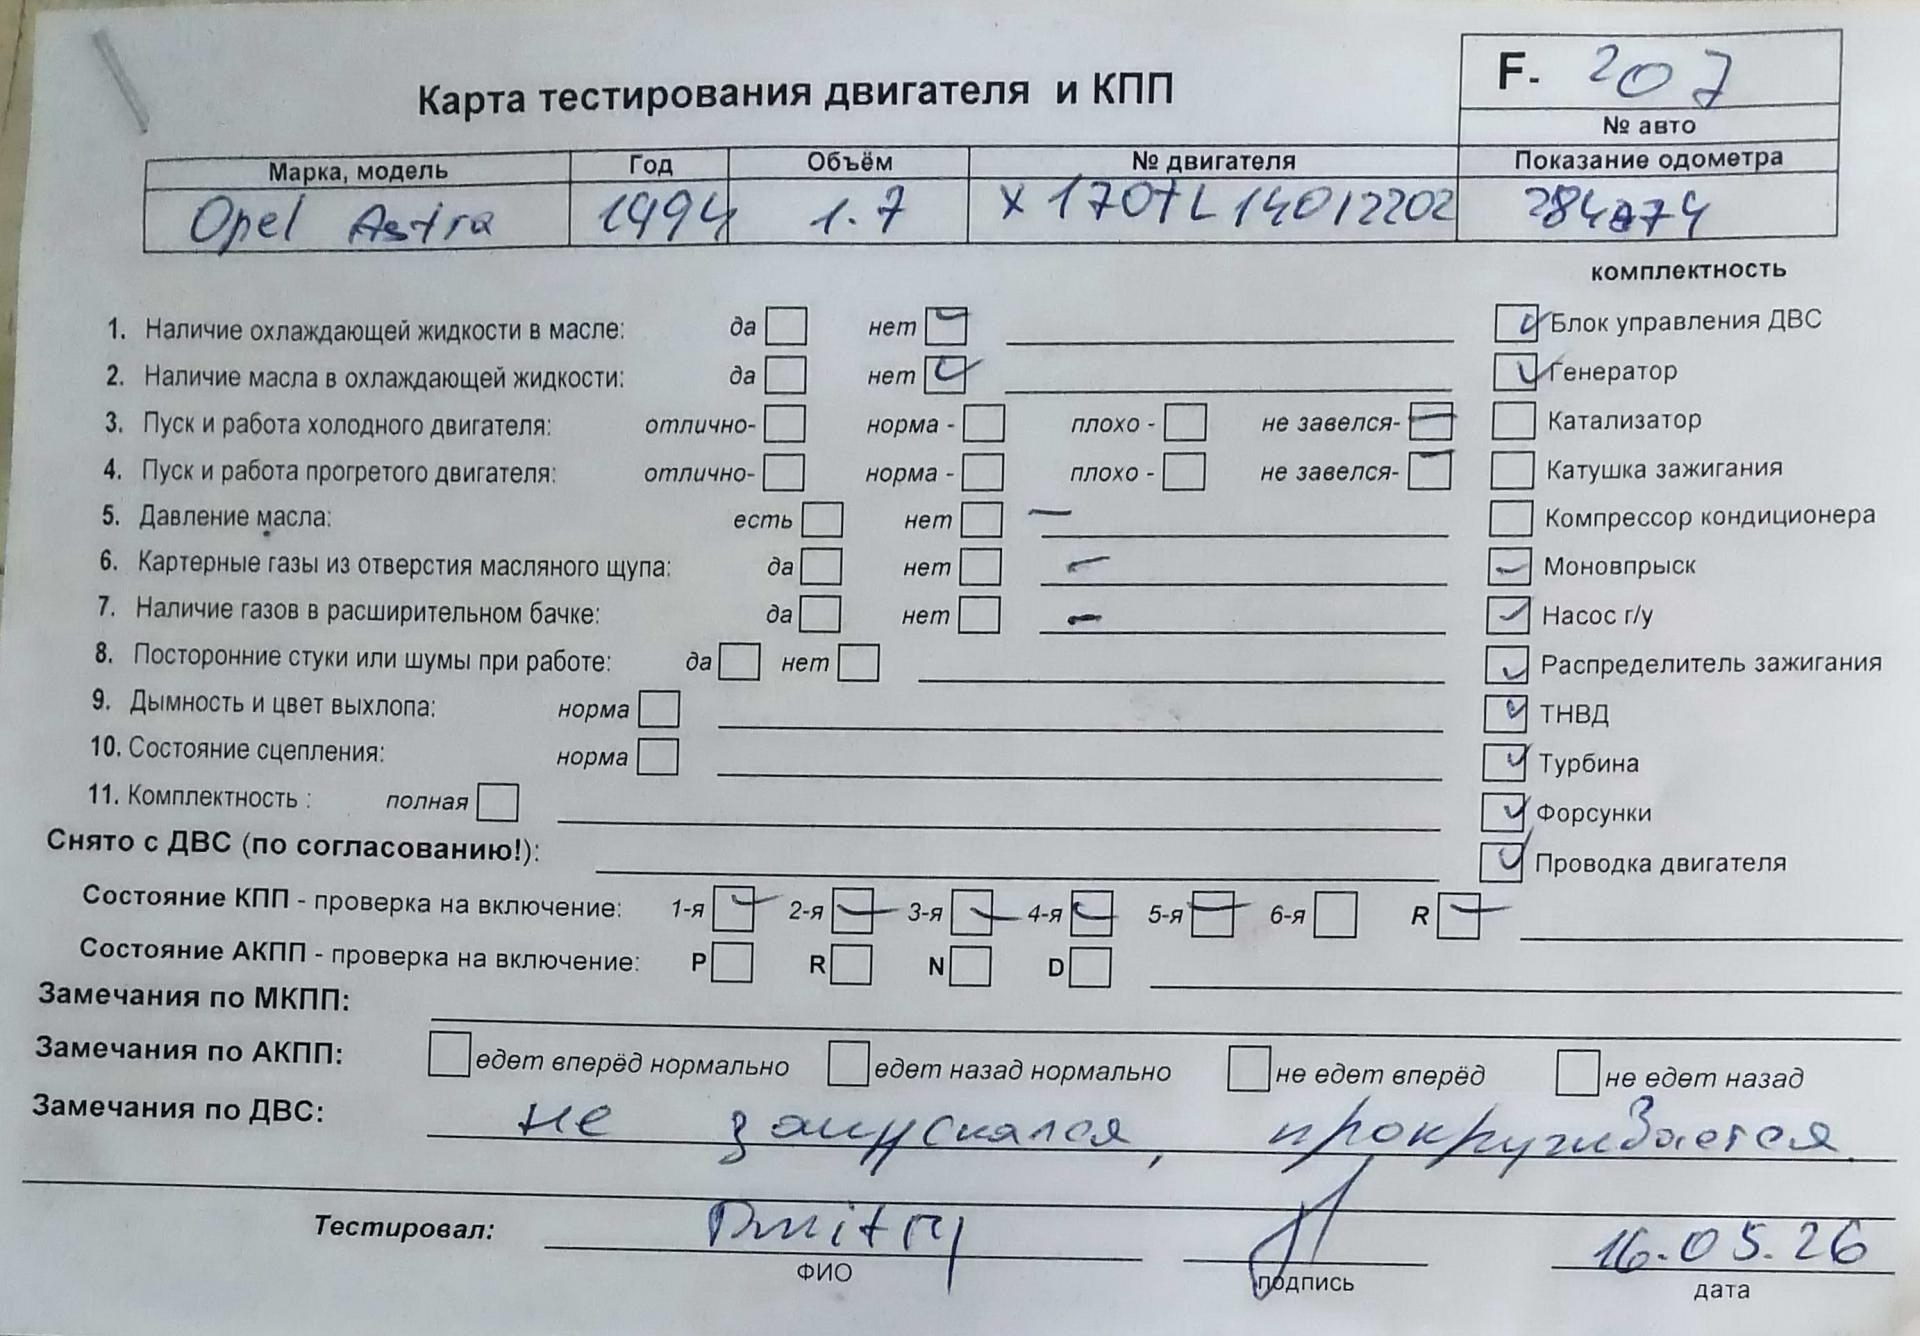 Карта тестирования двигателя и КПП
F- 207
№ авто
Марка, модель Год Объём № двигателя Показание одометра
Opel Astra 1994 1.7 X 1707L 14012202 284874
комплектность
1. Наличие охлаждающей жидкости в масле: да нет
Блок управления ДВС
2. Наличие масла в охлаждающей жидкости: да нет
Генератор
3. Пуск и работа холодного двигателя: отлично- норма - плохо - не завелся-
Катализатор
4. Пуск и работа прогретого двигателя: отлично- норма - плохо - не завелся-
Катушка зажигания
5. Давление масла: есть нет —
Компрессор кондиционера
6. Картерные газы из отверстия масляного щупа: да нет —
Моновпрыск
7. Наличие газов в расширительном бачке: да нет —
Насос г/у
8. Посторонние стуки или шумы при работе: да нет
Распределитель зажигания
9. Дымность и цвет выхлопа: норма
ТНВД
10. Состояние сцепления: норма
Турбина
11. Комплектность : полная
Форсунки
Снято с ДВС (по согласованию!):
Проводка двигателя
Состояние КПП - проверка на включение: 1-я 2-я 3-я 4-я 5-я 6-я R
Состояние АКПП - проверка на включение: P R N D
Замечания по МКПП:
Замечания по АКПП: едет вперёд нормально едет назад нормально не едет вперёд не едет назад
Замечания по ДВС: не запускался, прокручивается.
Тестировал: Dmitry 16.05.26
ФИО подпись дата